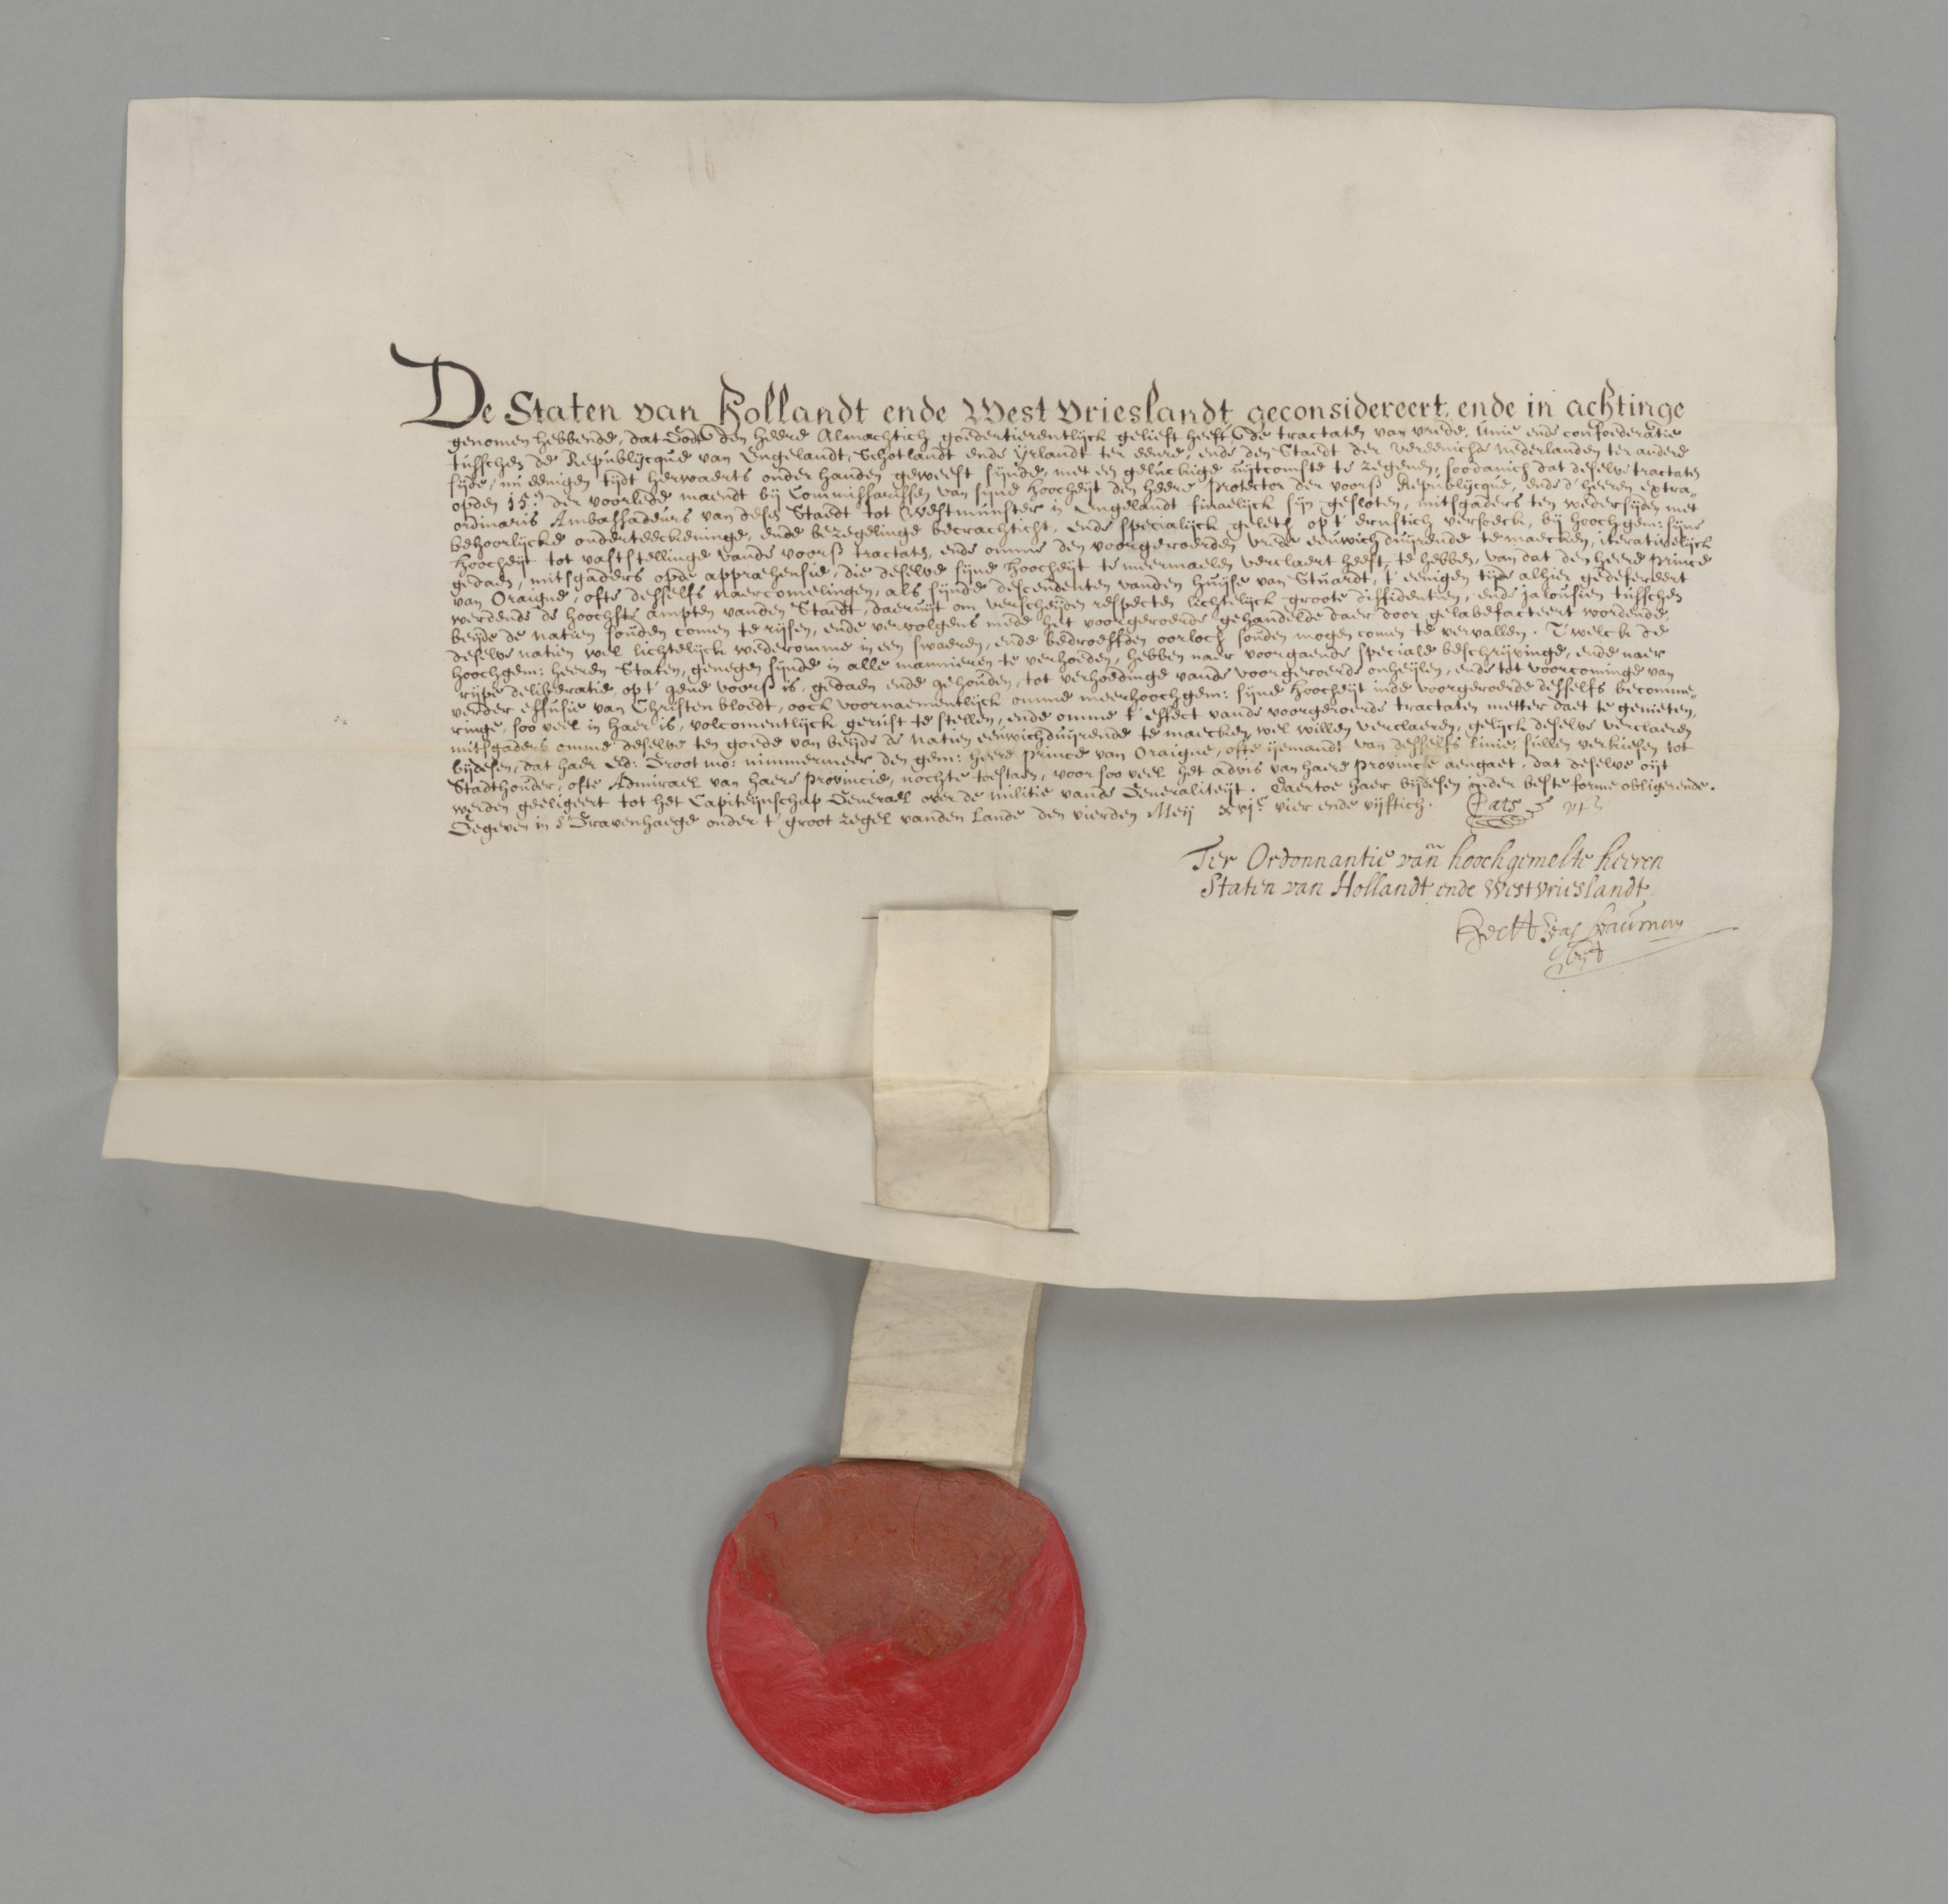 De Staten van Hollandt ende West Vrieslandt, geconsidereert, ende in achtinge
genomen hebbende, dat Godt den Heere Almachtich goedertierentlijck gelieft heeft, de tractaten van vrede, Unie ende confoederatie
tusschen de Republijcque van Engelandt, Schotlandt ende Yrlandt ter eenre, ende den Staedt der Vereenichde Nederlanden ter andere
sijde, nu eenigen tijdt herwaerts onder handen geweest sijnde, met een geluckige uijtcomste te zegenen, soodanich dat deselve tractaten
opden 15.en der voorlede maendt bij Commissarissen van sijne Hoocheijt den Heere Protector der voorß Republijcque, ende d'heeren extra„
ordinaris Ambassadeurs van desen Staedt tot Westmunster in Engelandt finaelijck sijn gesloten, mitsgaders ten wedersijden met
behoorlijcke onderteeckeninge, ende bezegelinge becrachticht, ende specialijck gelet op t' ernstich versoeck, bij hoochgem: sijne
Hoocheijt tot vaststellinge vande voorß tractaten, ende omme den voorgeroerden vrede eeuwich duijrende te maecken, iterativelijck
gedaen, mitsgaders opde apprehensie, die deselve sijne Hoocheijt te meermaelen verclaert heeft, te hebben, van dat den heere Prince
van Oraigne, ofte desselfs naercomelingen, als sijnde descendenten vanden Huijse van Stuardt, t' eenigen tijde alhier gedefereert
werdende de hoochste ampten vanden Staedt, daeruijt om verscheijden respecten lichtelijck groote diffidentien, ende jalousien tusschen
beijde de natien souden comen te rijsen, ende vervolgens mede het voorgeroerde gehandelde daer door gelabefacteert wordende,
deselve natien wel lichtelijck wederomme in een swaeren, ende bedroeffden oorloch souden mogen comen te vervallen. T'welck de
hoochgem: heeren Staten, genegen sijnde in alle mannieren te verhoeden, hebben naer voorgaende speciale beschrijvinge, ende naer
rijpe deliberatie, op t' gene voorß is, gedaen ende gehouden, tot verhoedinge vande voorgeroerde onheijlen, ende tot voorcominge van
verder effusie van Christen bloedt, oock voornaementlijck omme meerhoochgem: sijne Hoocheijt inde voorgeroerde desselfs becomme„
ringe, soo veel in haer is, volcomentlijck gerust te stellen, ende omme t' effect vande voorgeroerde tractaten metter daet te genieten,
mitsgaders omme deselve ten goede van beijde de natien eeuwichduijrende te maecken, wel willen verclaeren, gelijck deselve verclaeren
bijdesen, dat haer Ed: Groot Mo: nimmermeer den gem: heere Prince van Oraigne, ofte ijemandt van desselfs linie, sullen verkiesen tot
Stadthouder, ofte Admirael van haere Provincie, nochte toestaen, voor soo veel het advis van haere Provincie aengaet, dat deselve oijt
werden geeligeert tot het Capiteijnschap Generael over de militie vande Generaliteijt. Daertoe haer bijdesen inder beste forme obligerende.
Gegeven in s'Gravenhaege onder t' groot zegel vanden Lande den vierden Meij xvjc vier ende vijftich. Cats
Ter Ordonnantie van hoochgemelte heeren
Staten van Hollandt ende WestVrieslandt
Herbt van Beaumont